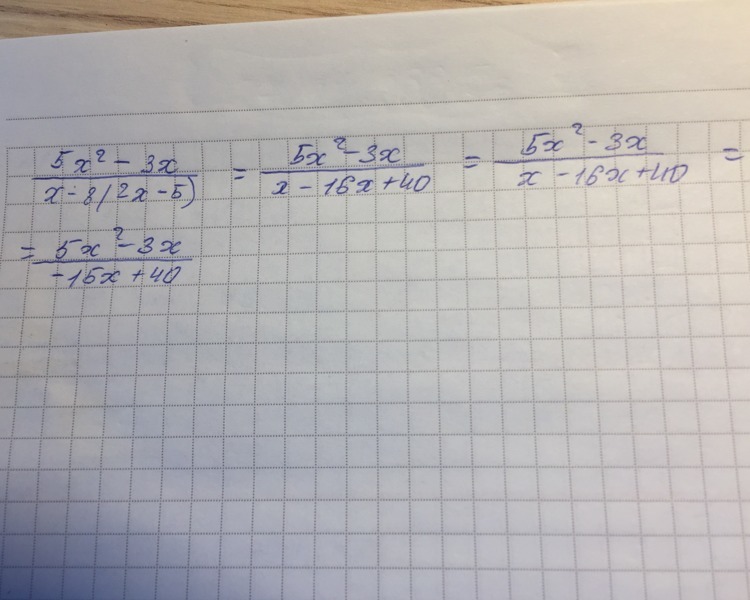 5x² - 3x / x - 8(2x - 5) = 5x² - 3x / x - 16x + 40 = 5x² - 3x / x - 16x + 40 =
= 5x² - 3x / -15x + 40